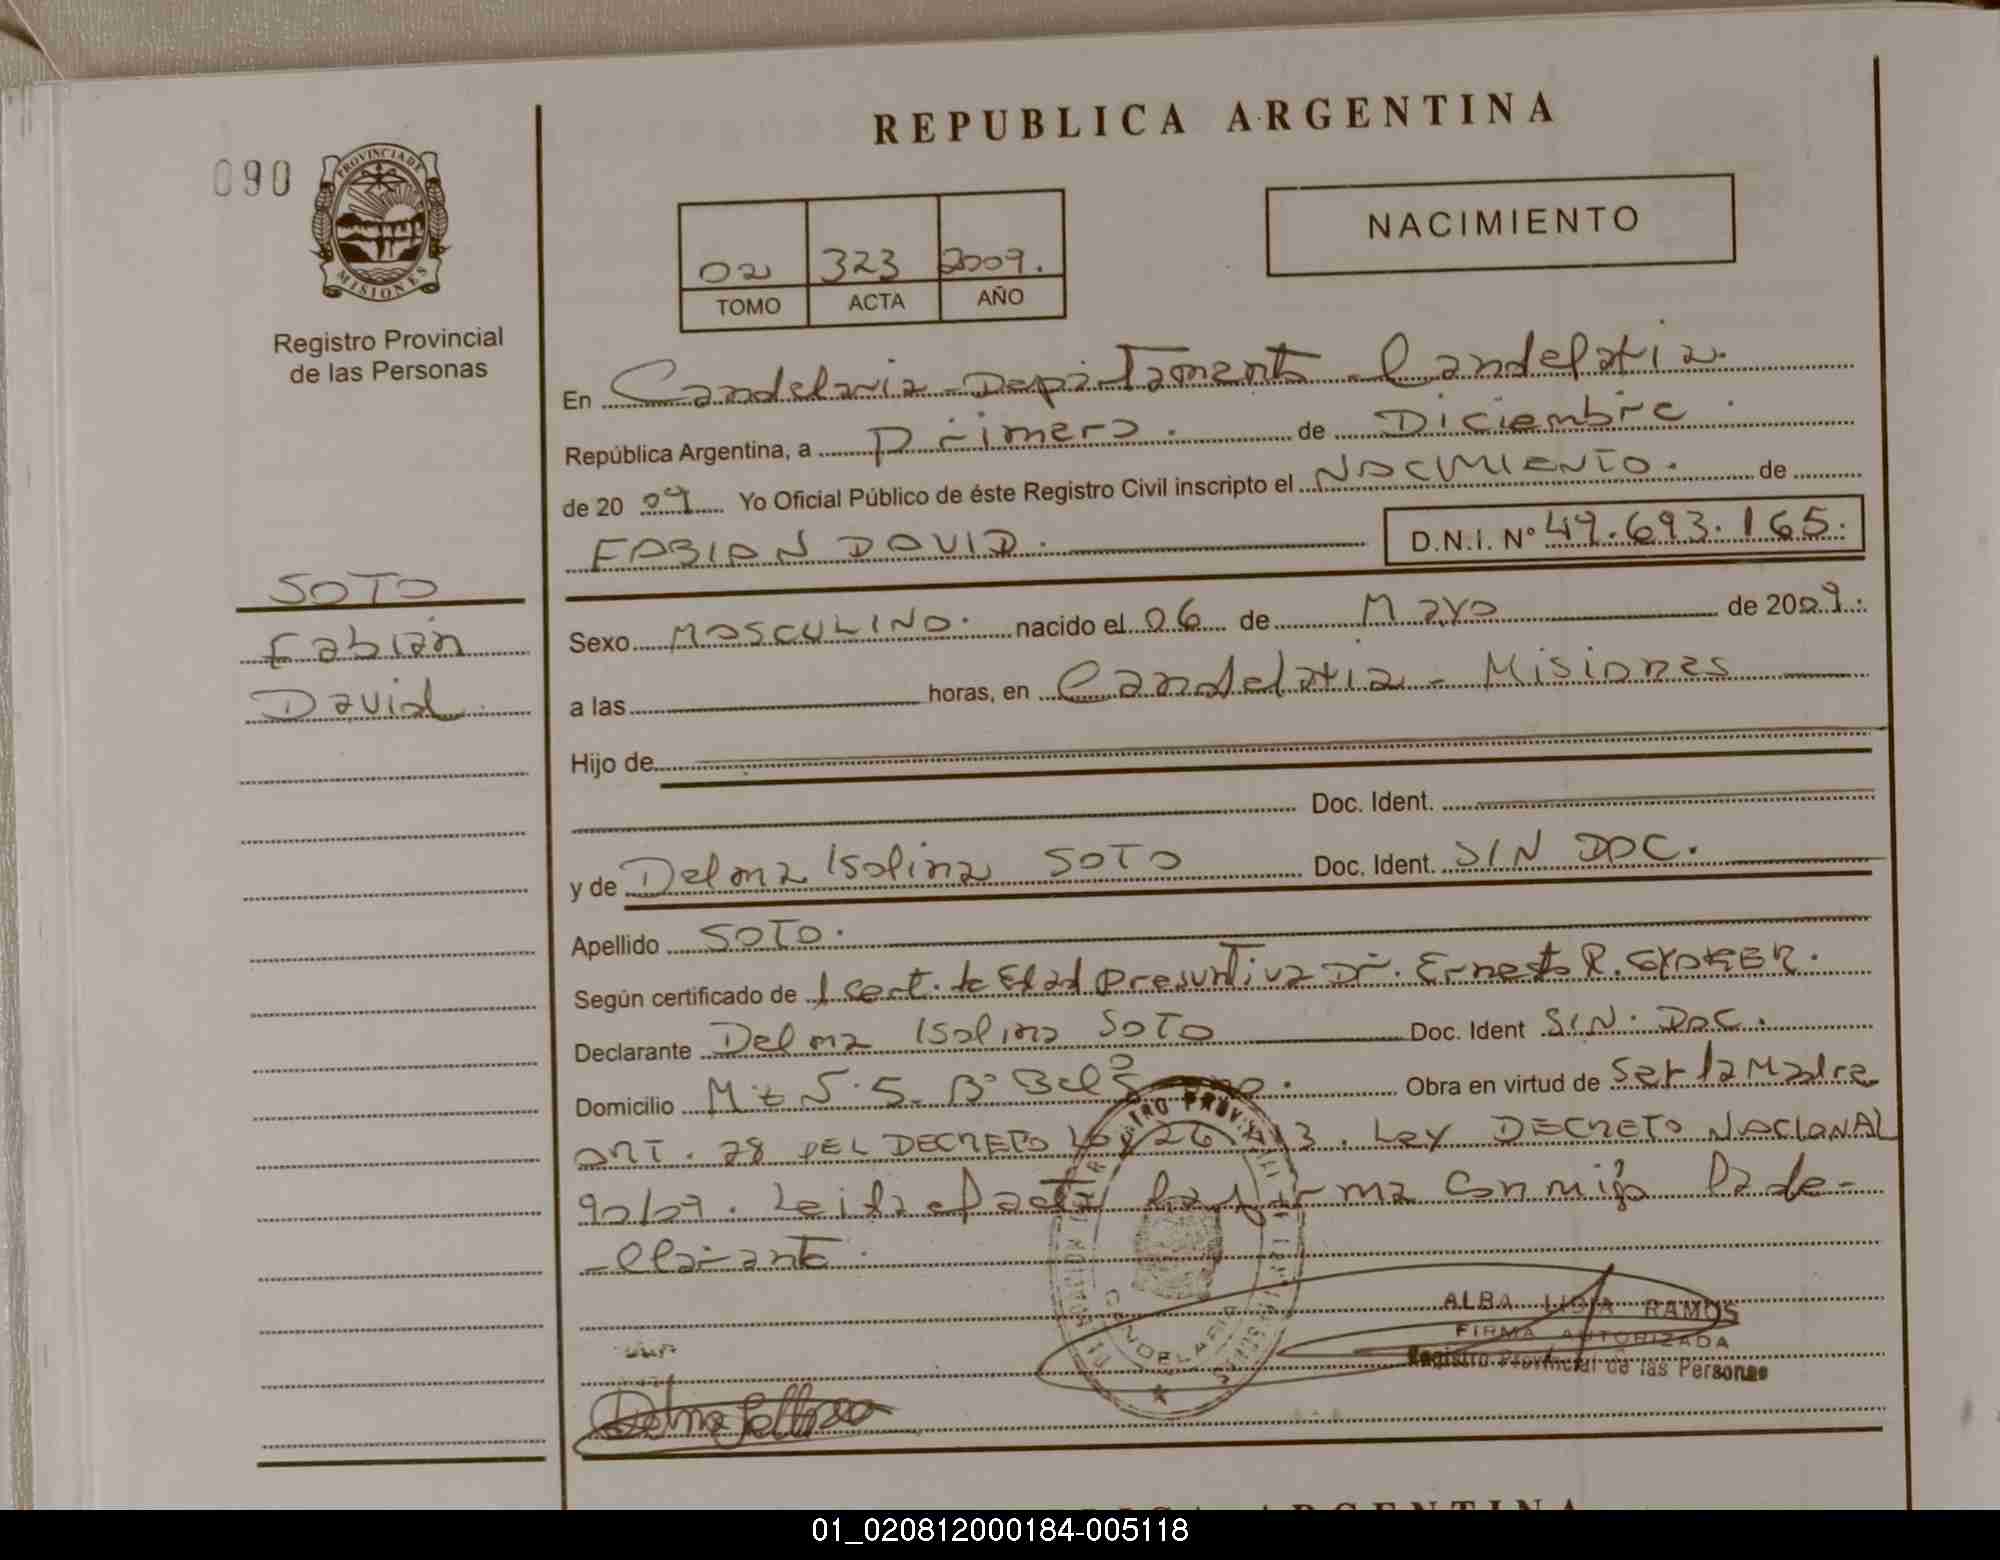 REPUBLICA ARGENTINA
090
PROVINCIA DE
MISIONES
NACIMIENTO
02 323 2009.
TOMO ACTA AÑO
Registro Provincial
de las Personas
En Candelaria - Departamento Candelaria.
República Argentina, a primero. de Diciembre.
de 2009 Yo Oficial Público de éste Registro Civil inscripto el NACIMIENTO. de
FABIAN DAVID. D.N.I. Nº 49.693.165.
SOTO
Fabián
David
Sexo MASCULINO. nacido el 06 de Mayo de 2009.
a las horas, en Candelaria - Misiones
Hijo de
Doc. Ident.
y de Delma Isolina SOTO Doc. Ident. SIN DOC.
Apellido SOTO.
Según certificado de 1 cert. de Edad presuntiva Dr. Ernesto R.
Declarante Delma Isolina SOTO Doc. Ident SIN. DOC.
Domicilio Mz N.5. Bº Obra en virtud de ser la Madre
ART. 28 DEL DECRETO Ley DECRETO NACIONAL
90/09. Leida el acta la firma conmigo la de-
-clarante.
CANDELARIA
ALBA LIDIA RAMOS
FIRMA AUTORIZADA
Registro Provincial de las Personas
ARGENTINA
01_020812000184-005118